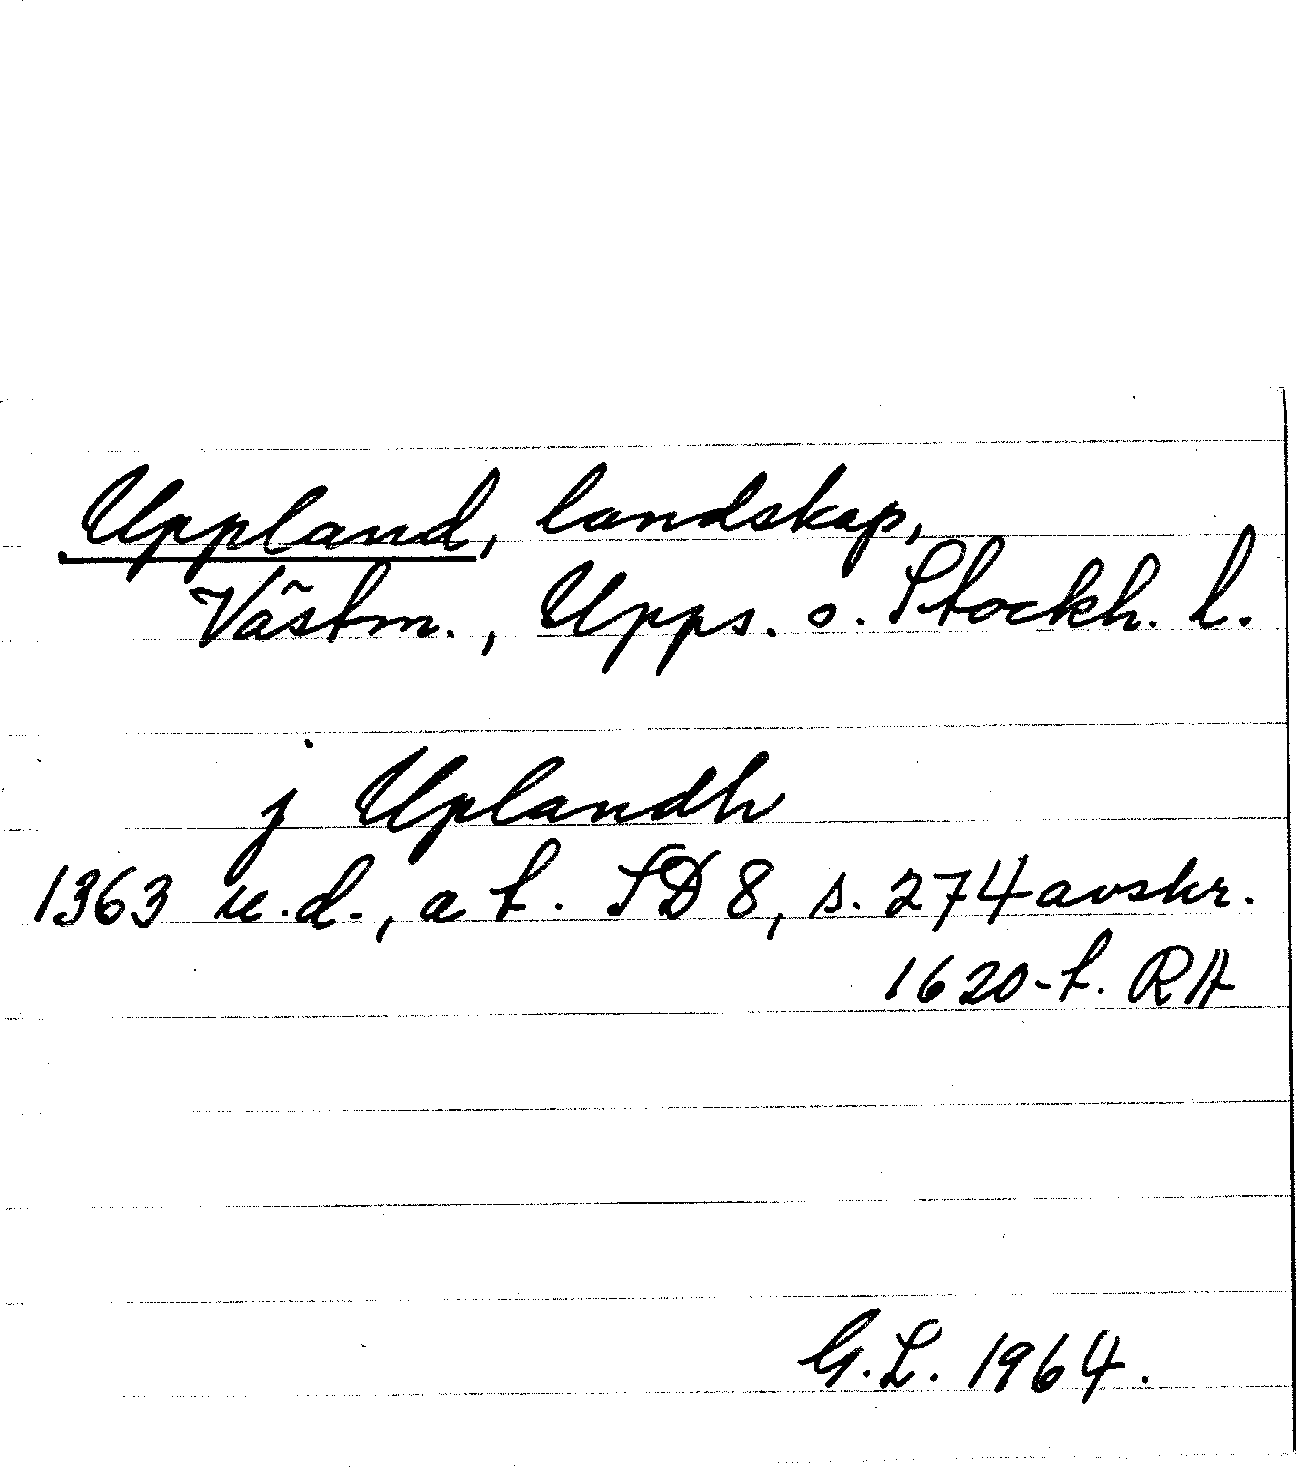 Uppland, landskap,
Västm., Upps. o. Stockh. l.
j Uplandh
1363 u.d., a t. SD 8, s. 274 avskr.
1620-t. RA
G.L. 1964.